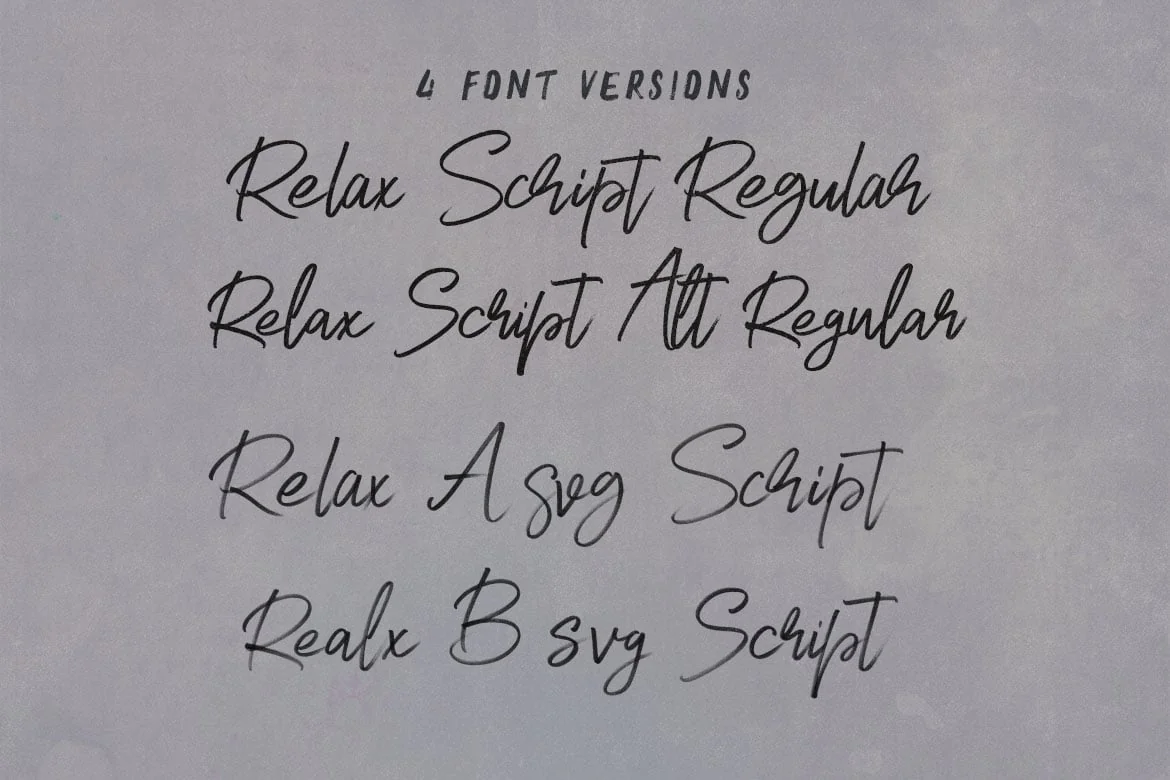 4 FONT VERSIONS
Relax Script Regular
Relax Script Alt Regular
Relax A svg Script
Realx B svg Script